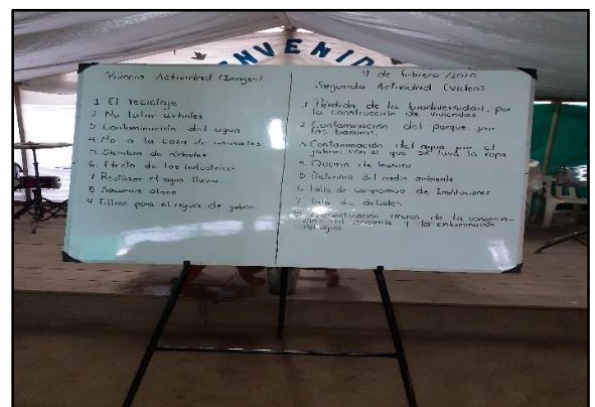 BIENVENIDO
Primera Actividad (Imagen)
1 El reciclaje
2 No talar árboles
3 Contaminación del agua
4 No a la caza de animales
5 Siembra de árboles
6. Efecto de las industrias
7 Reutilizar el agua lluvia
8 abono
9 para el agua de jabon
4 de febrero /2020
Segunda Actividad (video)
1 Pérdida de la biodiversidad. por
la construcción de viviendas
2 Contaminación del parque. por
las basuras.
3 Contaminación del agua por el
jabon con el que se lava la ropa
4 de basura
5 Deterioro del medio ambiente
6 Falta de compromiso de Instituciones
7 Falta de
8 de la
del ambiente y la contaminación
del agua